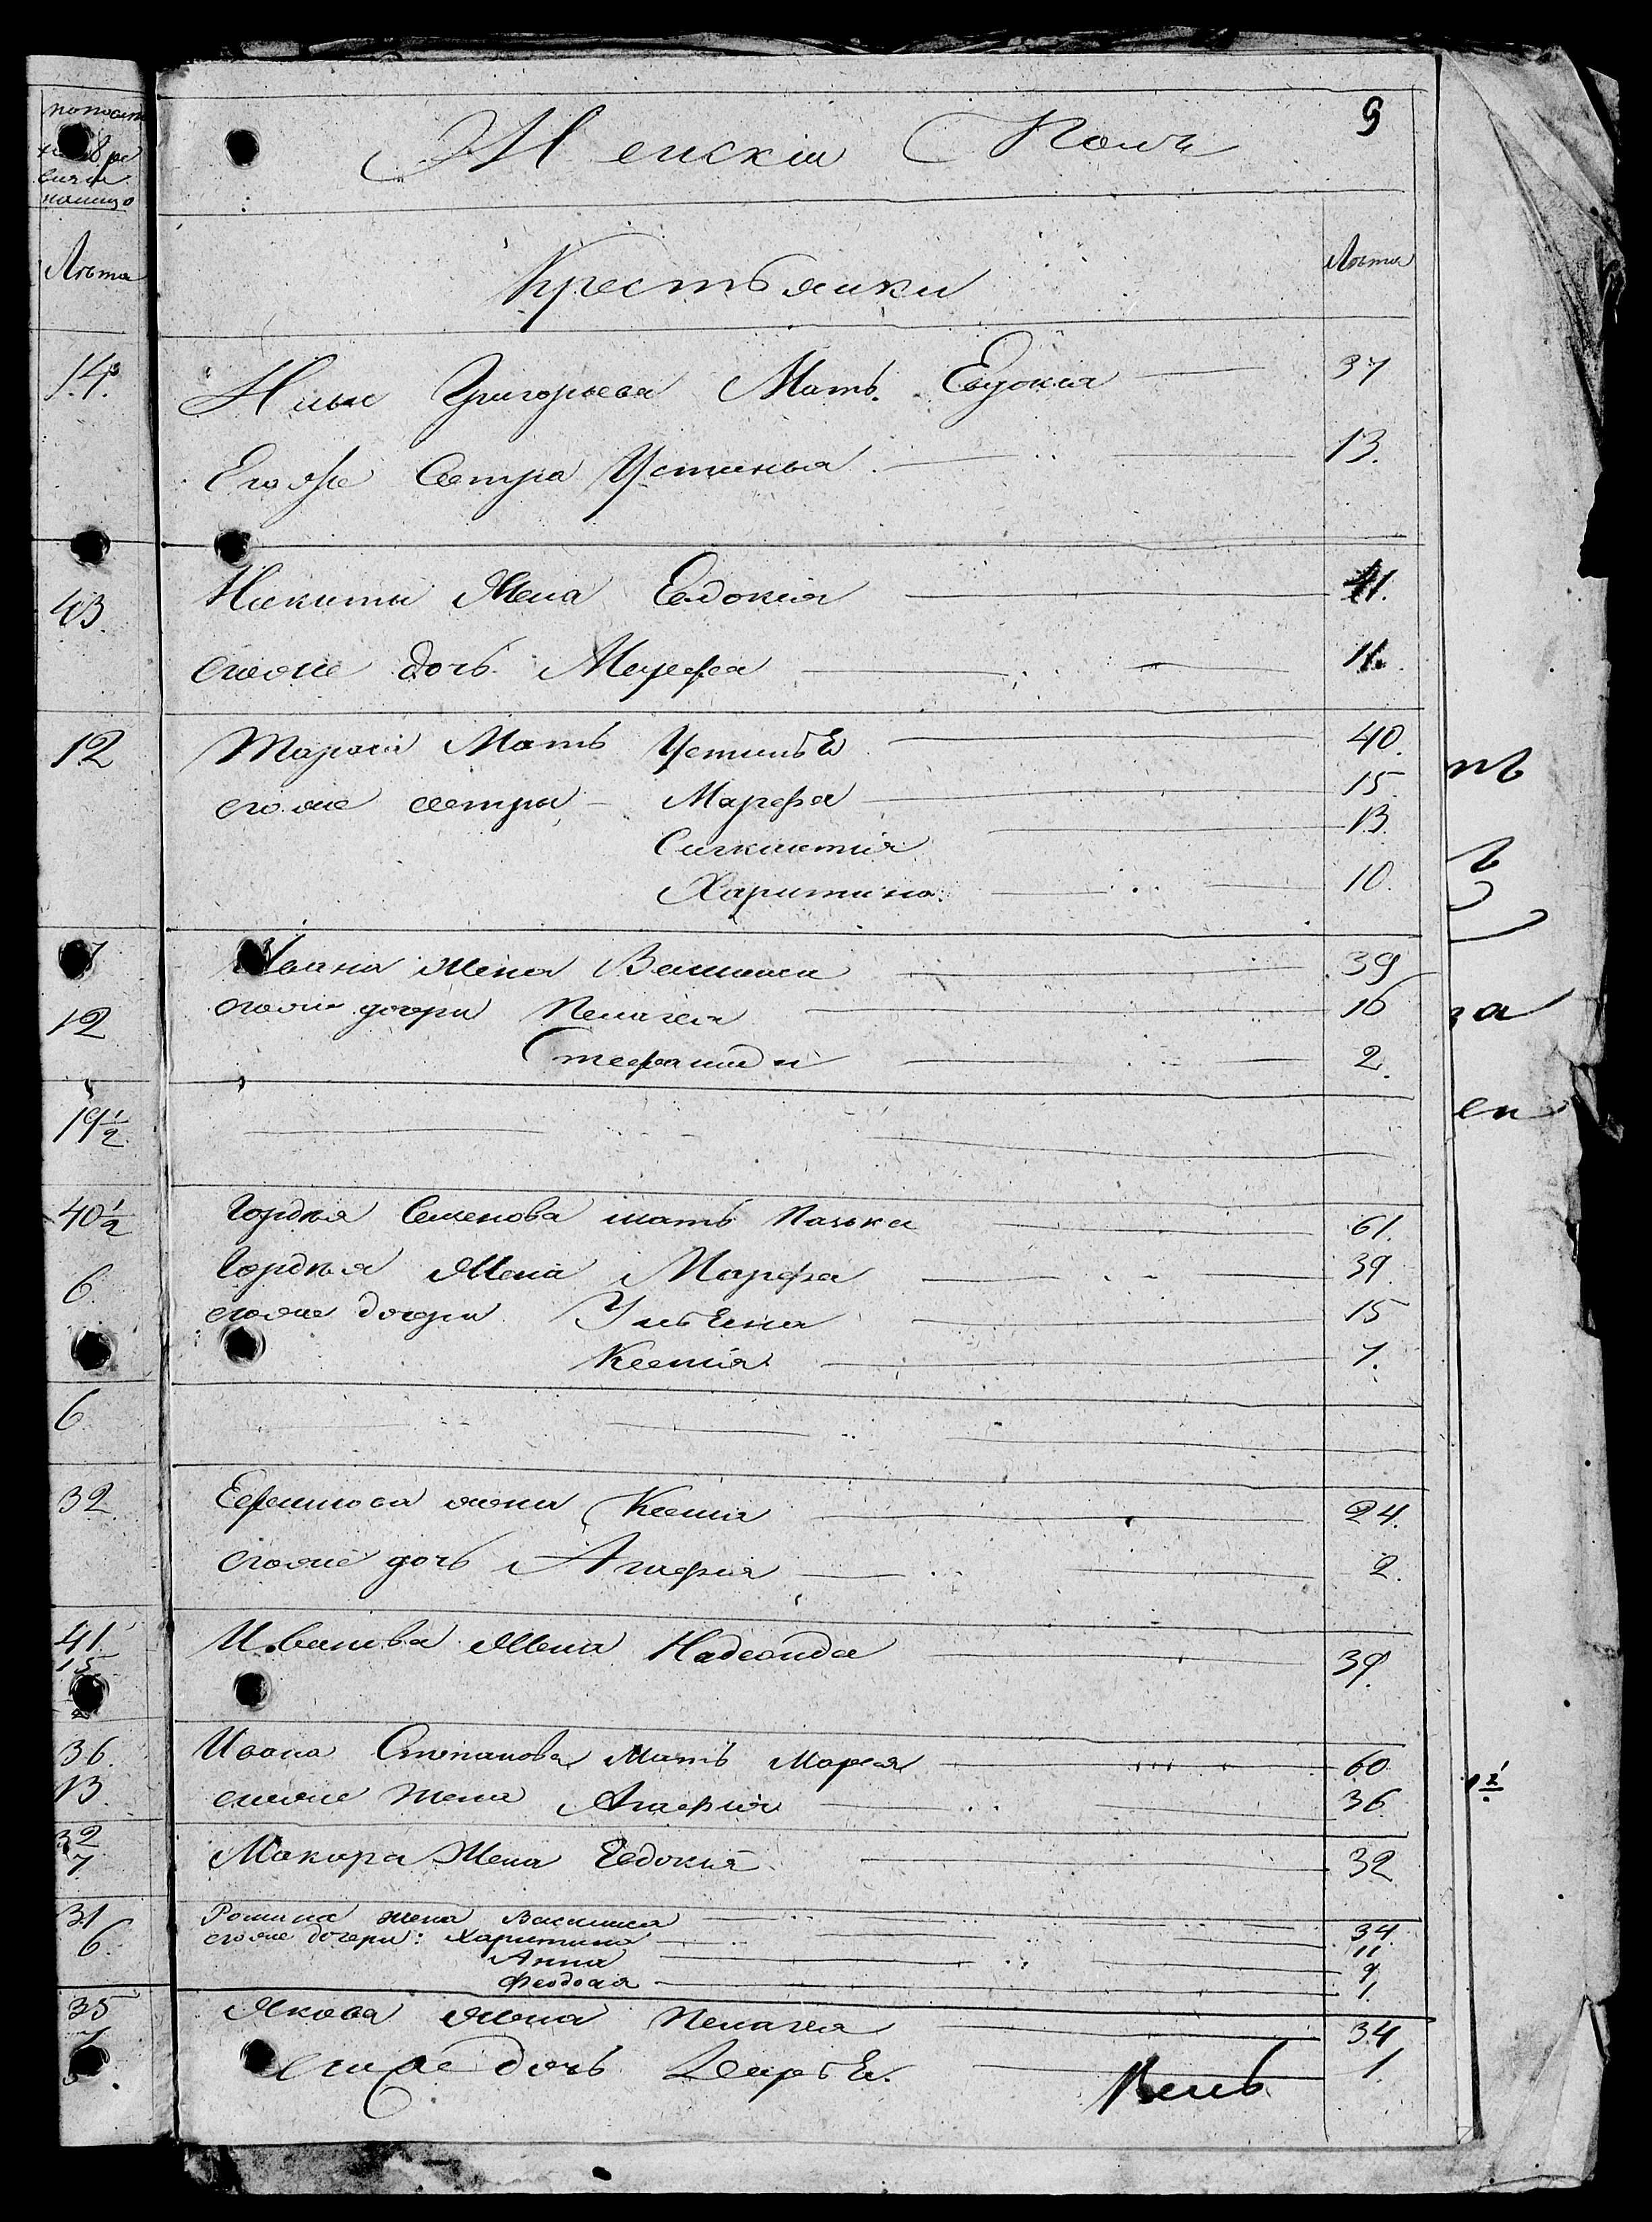 9
Женскій Полъ
Лѣта
Крестьянки
Лѣта
14.
Григорьева Мать Евдокія 37
Егоже Сестра Устинья 13.
43.
Никиты Жена Евдокія 41.
егоже дочь Марфа 11.
12
Тараса Мать Устинья 40.
егоже сестры Марфа 15.
13.
Харитина 10.
Ивана жена Василиса 39
12
егоже дочери Пелагея 16
Стефанида 2.
19 1/2
40 1/2
Гордѣя Семенова мать 61.
6.
Гордѣя Жена Марфа 39.
егоже дочери Ульяна 15
Ксенія 7.
6.
32.
жена Ксенія 24.
егоже дочь Агафія 2.
41.
15
Жена 39.
36.
Ивана Степанова Мать Марья 60
13.
егоже жена Агафія 36
32
7.
Макара Жена Евдокія 32
31
Романа жена Василиса 34
6.
егоже дочери: Харитина 11
Анна 9
Феодосія 1.
35
Якова Жена Пелагея 34
егоже дочь Дарья 1.